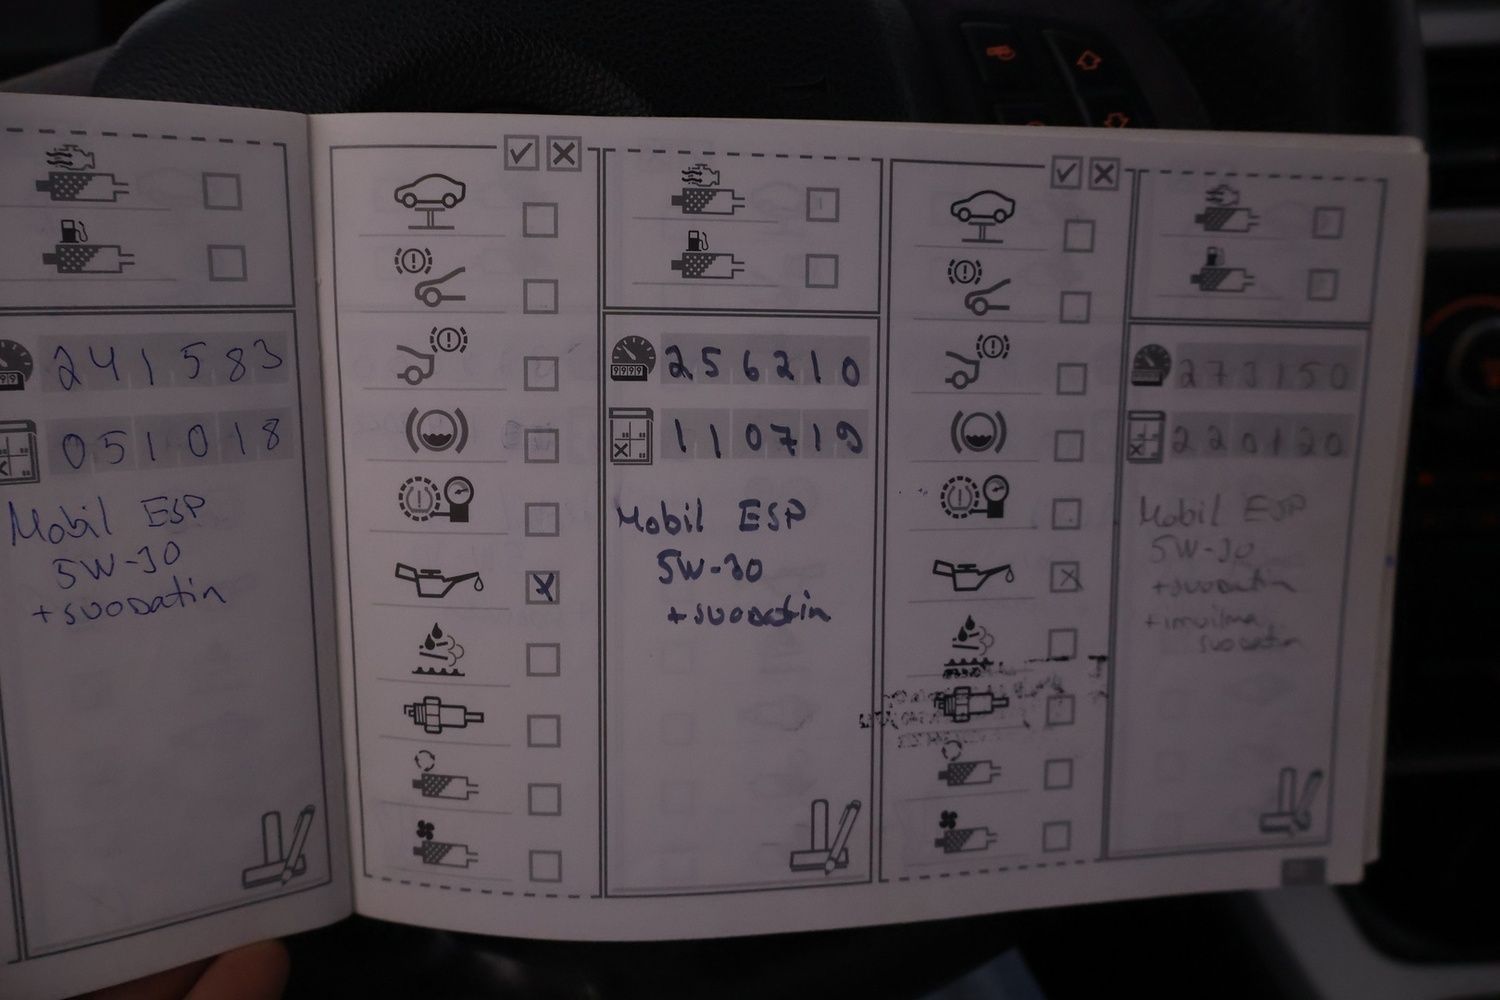 241583
051018
Mobil ESP
5W-30
+suodatin
9999
256210
110719
Mobil ESP
5W-30
+suodatin
273150
220120
Mobil ESP
5W-30
+suodatin
+imuilma
suodatin